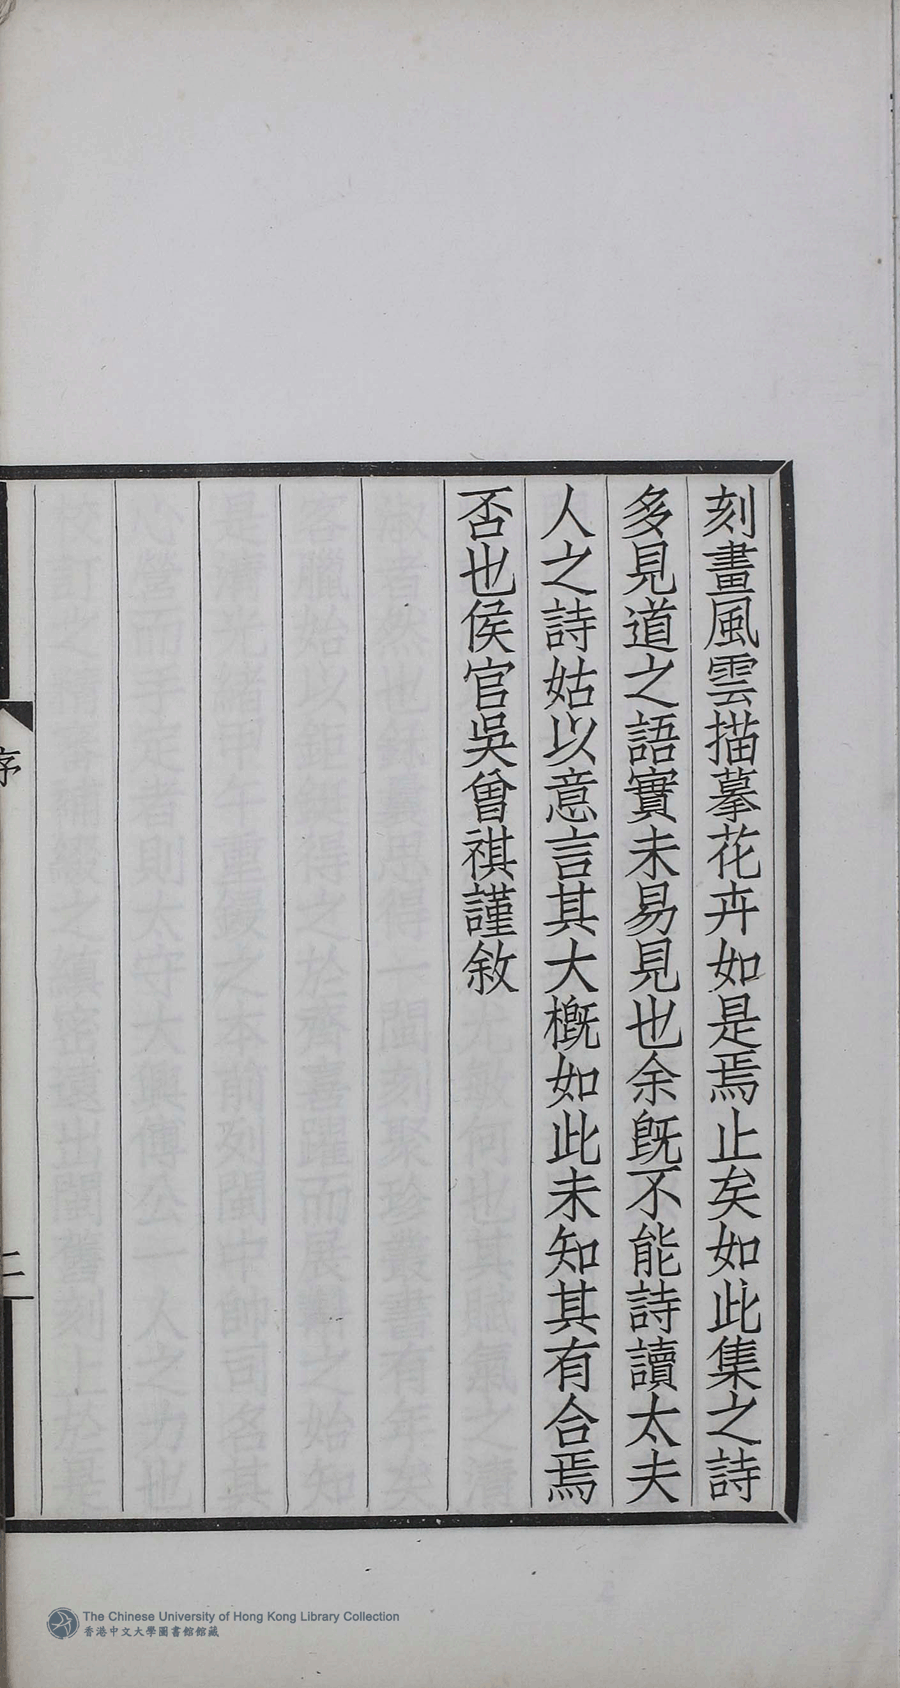 刻畫風雲描摹花卉如是焉止矣如此集之詩
多見道之語實未易見也余既不能詩讀太夫
人之詩姑以意言其大概如此未知其有合焉
否也侯官吳曾祺謹敘
序
二
The Chinese University of Hong Kong Library Collection
香港中文大學圖書館館藏